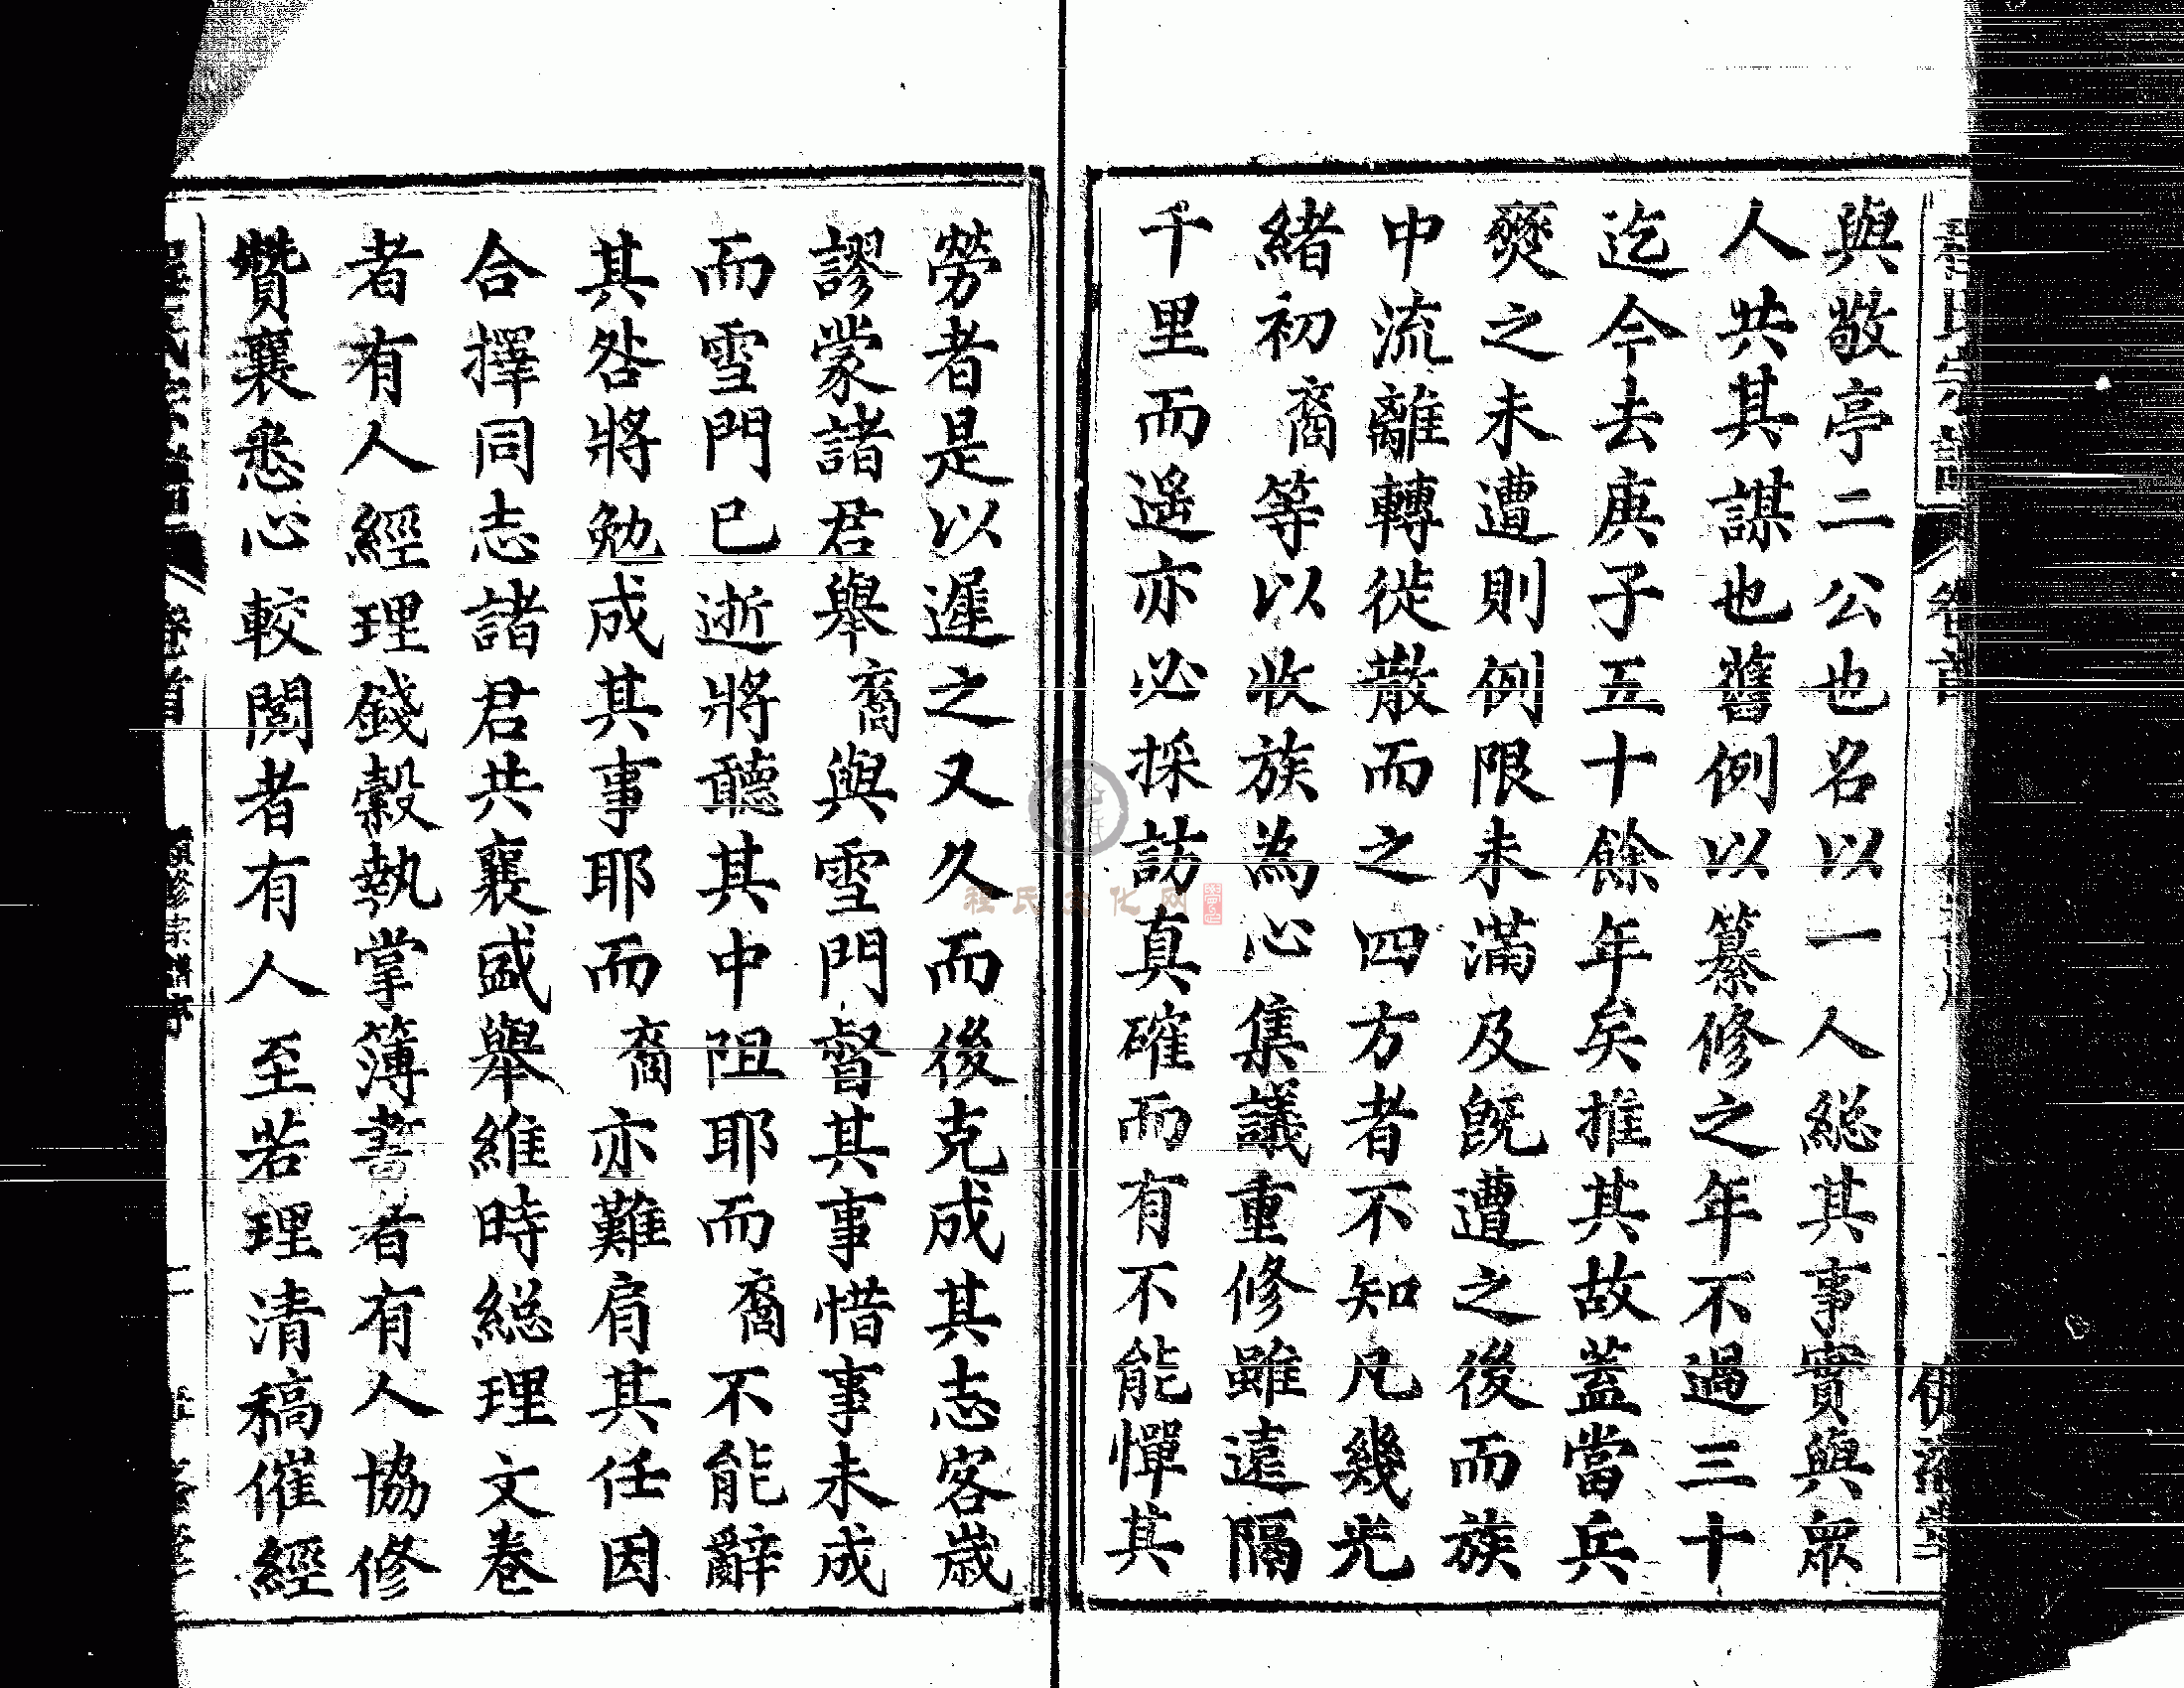 與敬亭二公也名以一人総其事實與眾
人共其謀也舊例以纂修之年不過三十
迄今去庚子五十餘年矣推其故蓋當兵
燹之未遭則例限未滿及既遭之後而族
中流離轉徙散而之四方者不知凡幾光
緒初裔等以收族為心集議重修雖遠隔
千里而遥亦必採訪真確而有不能憚其
勞者是以遲之又久而後克成其志客歲
謬蒙諸君舉裔與雪門督其事惜事未成
而雪門已逝將聽其中阻耶而裔不能辭
其咎將勉成其事耶而裔亦難肩其任因
合擇同志諸君共襄盛舉維時総理文卷
者有人經理錢穀執掌簿書者有人協修
贊襄悉心較閱者有人至若理清稿催經
卷首
程氏文化网